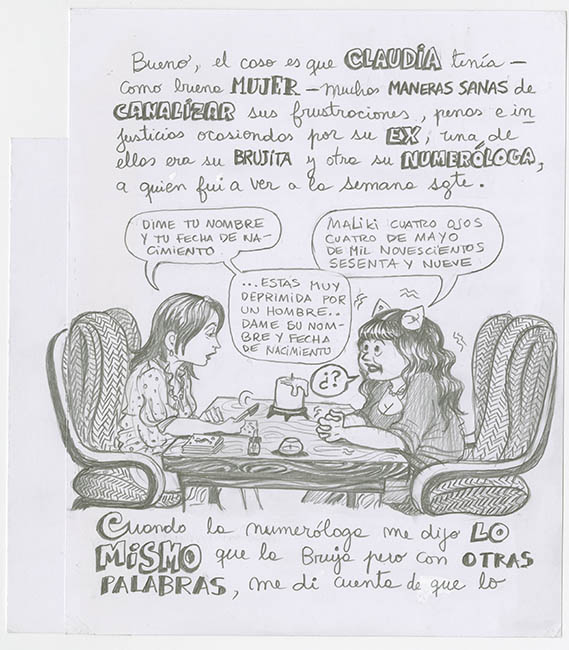 Bueno, el caso es que CLAUDIA tenía –
como buena MUJER – muchas MANERAS SANAS de
CANALIZAR sus frustraciones, penas e in
justicias ocasiondas por su EX, una de
ellas era su BRUJITA y otra su NUMERÓLOGA,
a quién fui a ver a la semana sgte.
DIME TU NOMBRE
Y TU FECHA DE NA-
CIMIENTO
MALIKI CUATRO OJOS
CUATRO DE MAYO
DE MIL NOVESCIENTOS
SESENTA Y NUEVE
...ESTAS MUY
DEPRIMIDA POR
UN HOMBRE..
DAME SU NOM-
BRE Y FECHA
DE NACIMIENTO
¿?
Cuando la numeróloga me dijo LO
MISMO que la Bruja pero con OTRAS
PALABRAS, me di cuenta de que lo